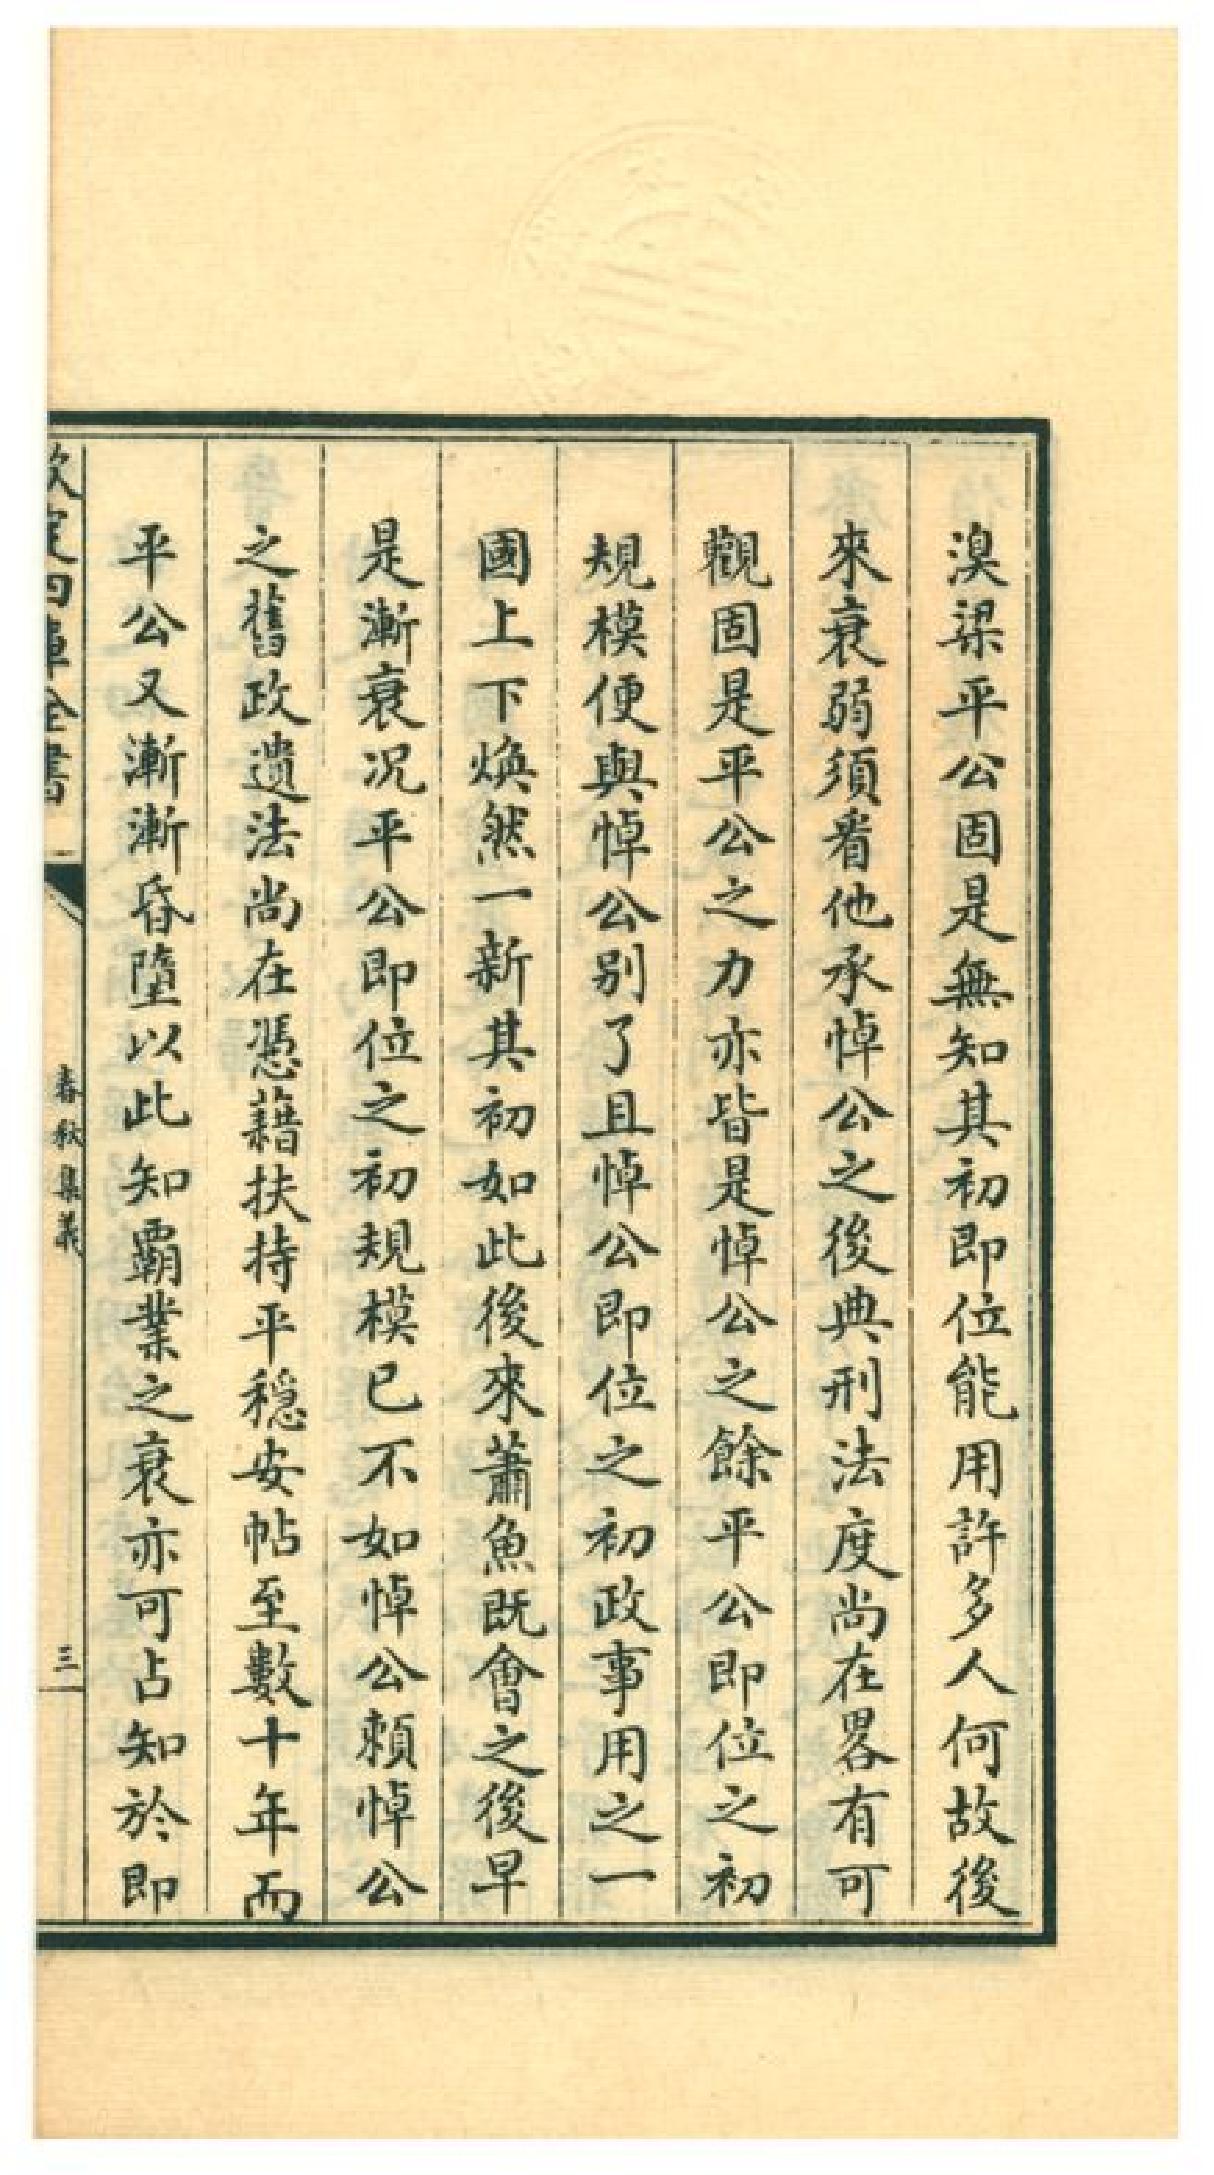 溴梁平公固是無知其初即位能用許多人何故後
來衰弱須看他承悼公之後典刑法度尚在畧有可
觀固是平公之力亦皆是悼公之餘平公即位之初
規模便與悼公別了且悼公即位之初政事用之一
國上下煥然一新其初如此後來蕭魚既會之後早
是漸衰况平公即位之初規模已不如悼公頼悼公
之舊政遺法尚在憑藉扶持平穩安帖至數十年而
平公又漸漸昏墮以此知霸業之衰亦可占知於即
欽定四庫全書
春秋集義
三